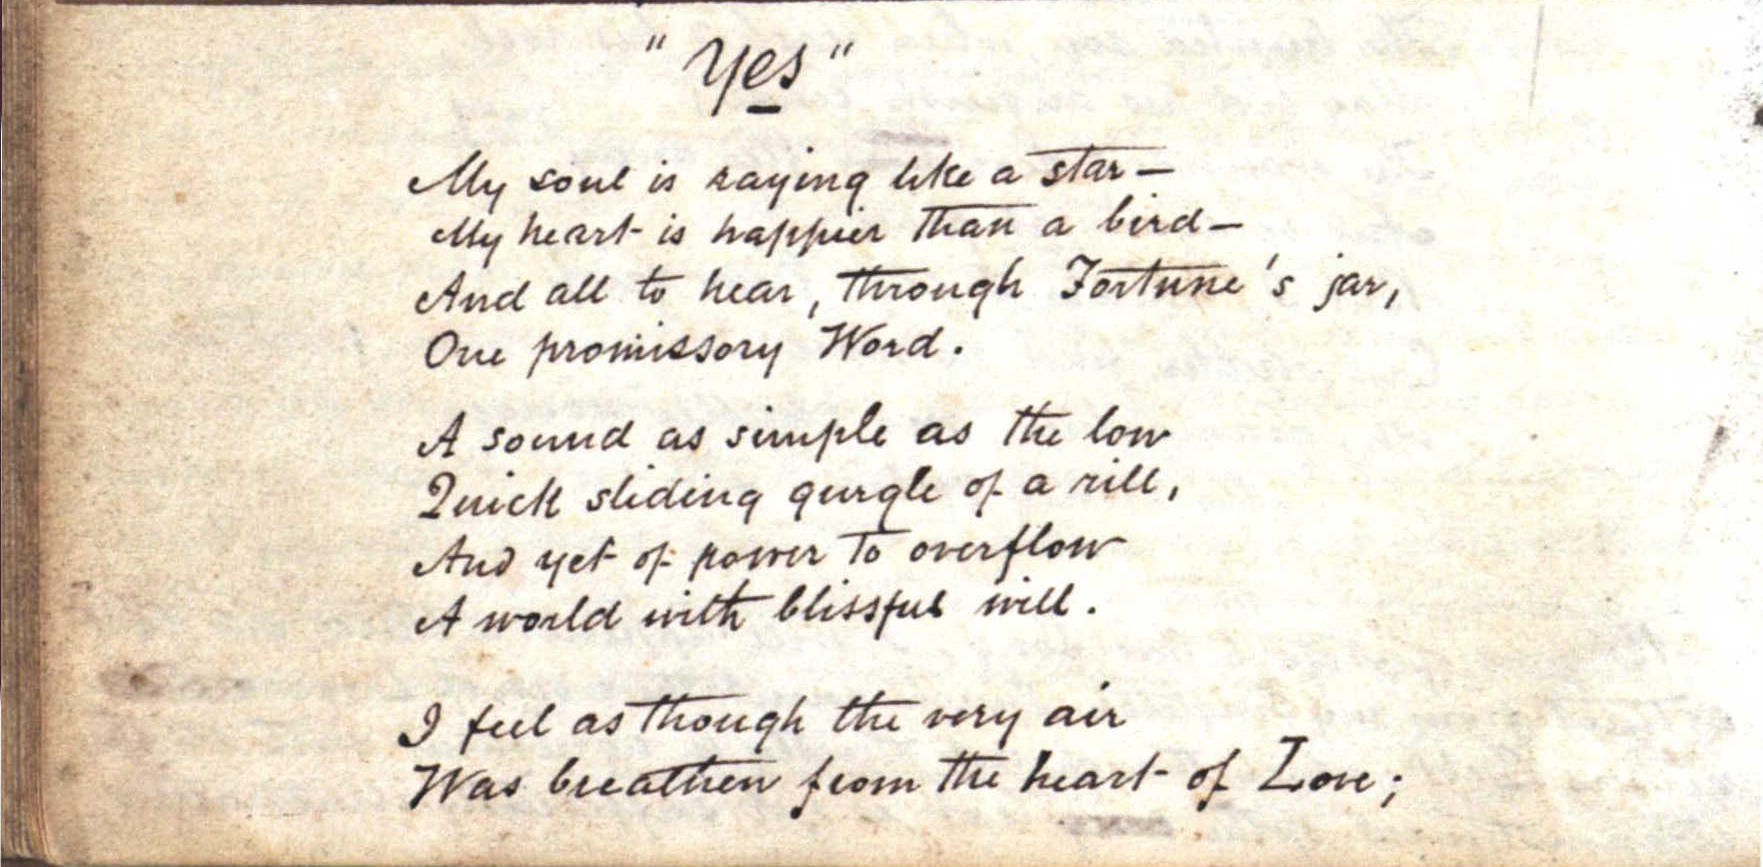 "Yes"
My soul is raying like a star—
My heart is happier than a bird—
And all to hear, through Fortune's jar,
One promissory Word.
A sound as simple as the low
Quick sliding gurgle of a rill,
And yet of power to overflow
A world with blissful will.
I feel as though the very air
Was breathen from the heart of Love;